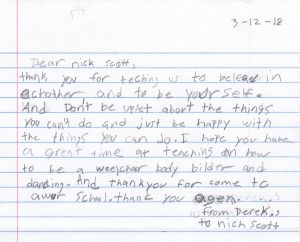 3-12-18
Dear nick Scott,
thank you for teching us to beleav in
eachother and to be yourself.
And Don't be upset about the things
you can't do and just be happy with
the things you can do. I hope you have
a great time at teaching on how
to be a weelchair body bilder and
dancing. And thankyou for come to
awer school. thank you agen
from Derek.s
to nick scott